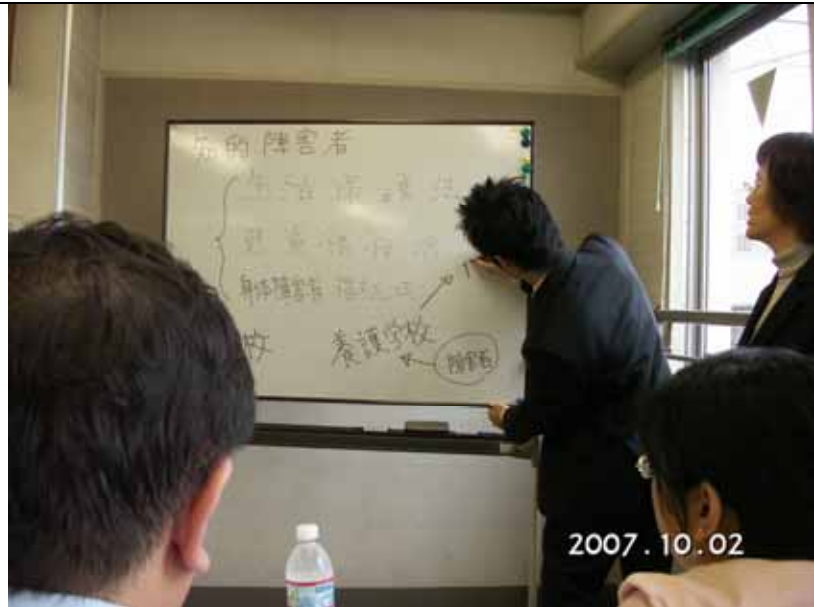 知的障害者
生活保護法
児童福祉法
身体障害者福祉法
校 養護学校
障害者
2007.10.02